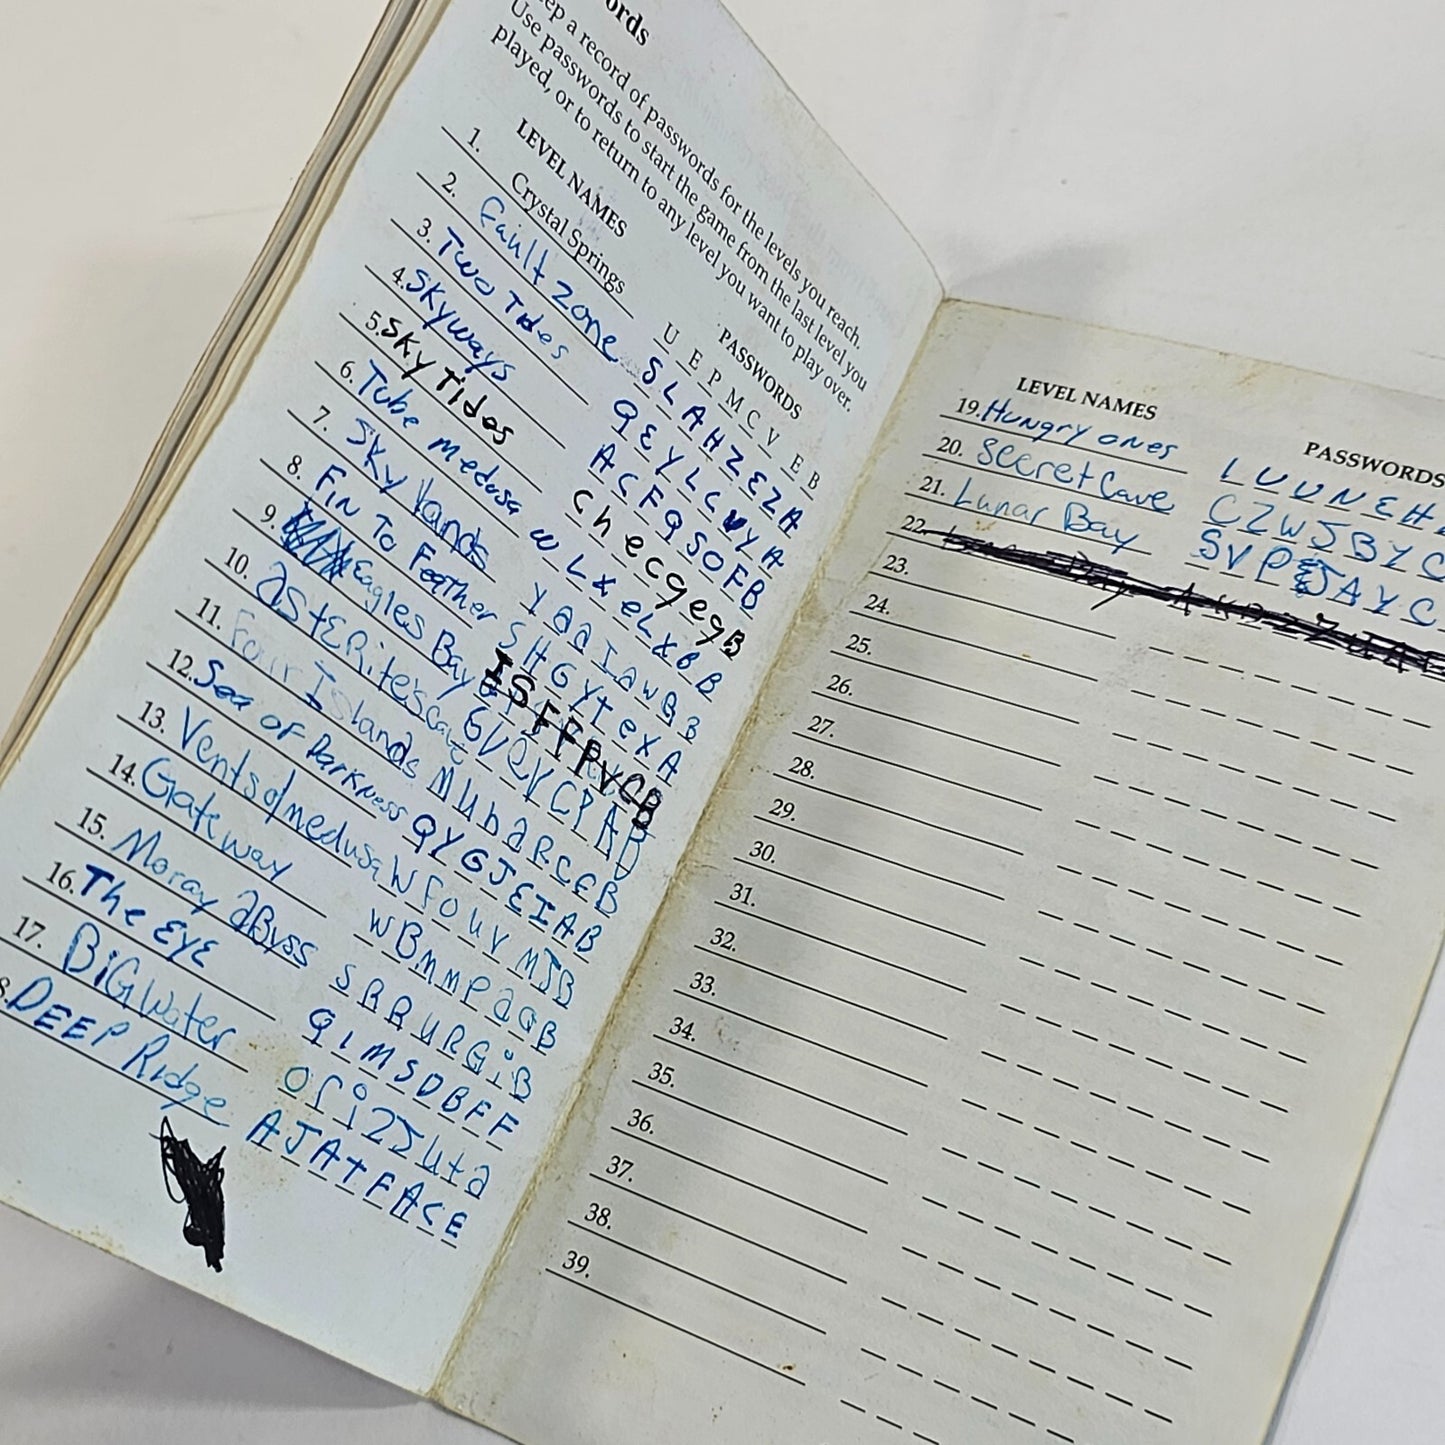 ords
ep a record of passwords for the levels you reach.
Use passwords to start the game from the last level you
played, or to return to any level you want to play over.
LEVEL NAMES PASSWORDS
1. Crystal Springs U E P M C V E B
2. Fault Zone S L A H Z E Z A
3. Two Tides Q E Y L C V Y A
4. Skyways A C F Q S O F B
5. Sky Tides C h e c q e g B
6. Tube medusa w L X e L X B B
7. Sky lands Y a a I a w B B
8. Fin To Feather S H G Y t e x A
9. Eagles Bay I S F F P V C B
10. aSTERite's cave G V Q V C P A B
11. Four Islands M U b a R C E B
12. Sea of Darkness Q Y G J E I A B
13. Vents of medusa W F O U V M J B
14. Gateway W B m m P a a B
15. Moray aByss S R R U R G i B
16. The EYE Q L M S D B F F
17. BiG Water O r i Z J u t a
8. DEEP Ridge A J A T F A C E
LEVEL NAMES PASSWORDS
19. Hungry ones L U U N E H
20. Secret Cave C Z W J B Y C
21. Lunar Bay S V P J A Y C
22.
23.
24.
25.
26.
27.
28.
29.
30.
31.
32.
33.
34.
35.
36.
37.
38.
39.